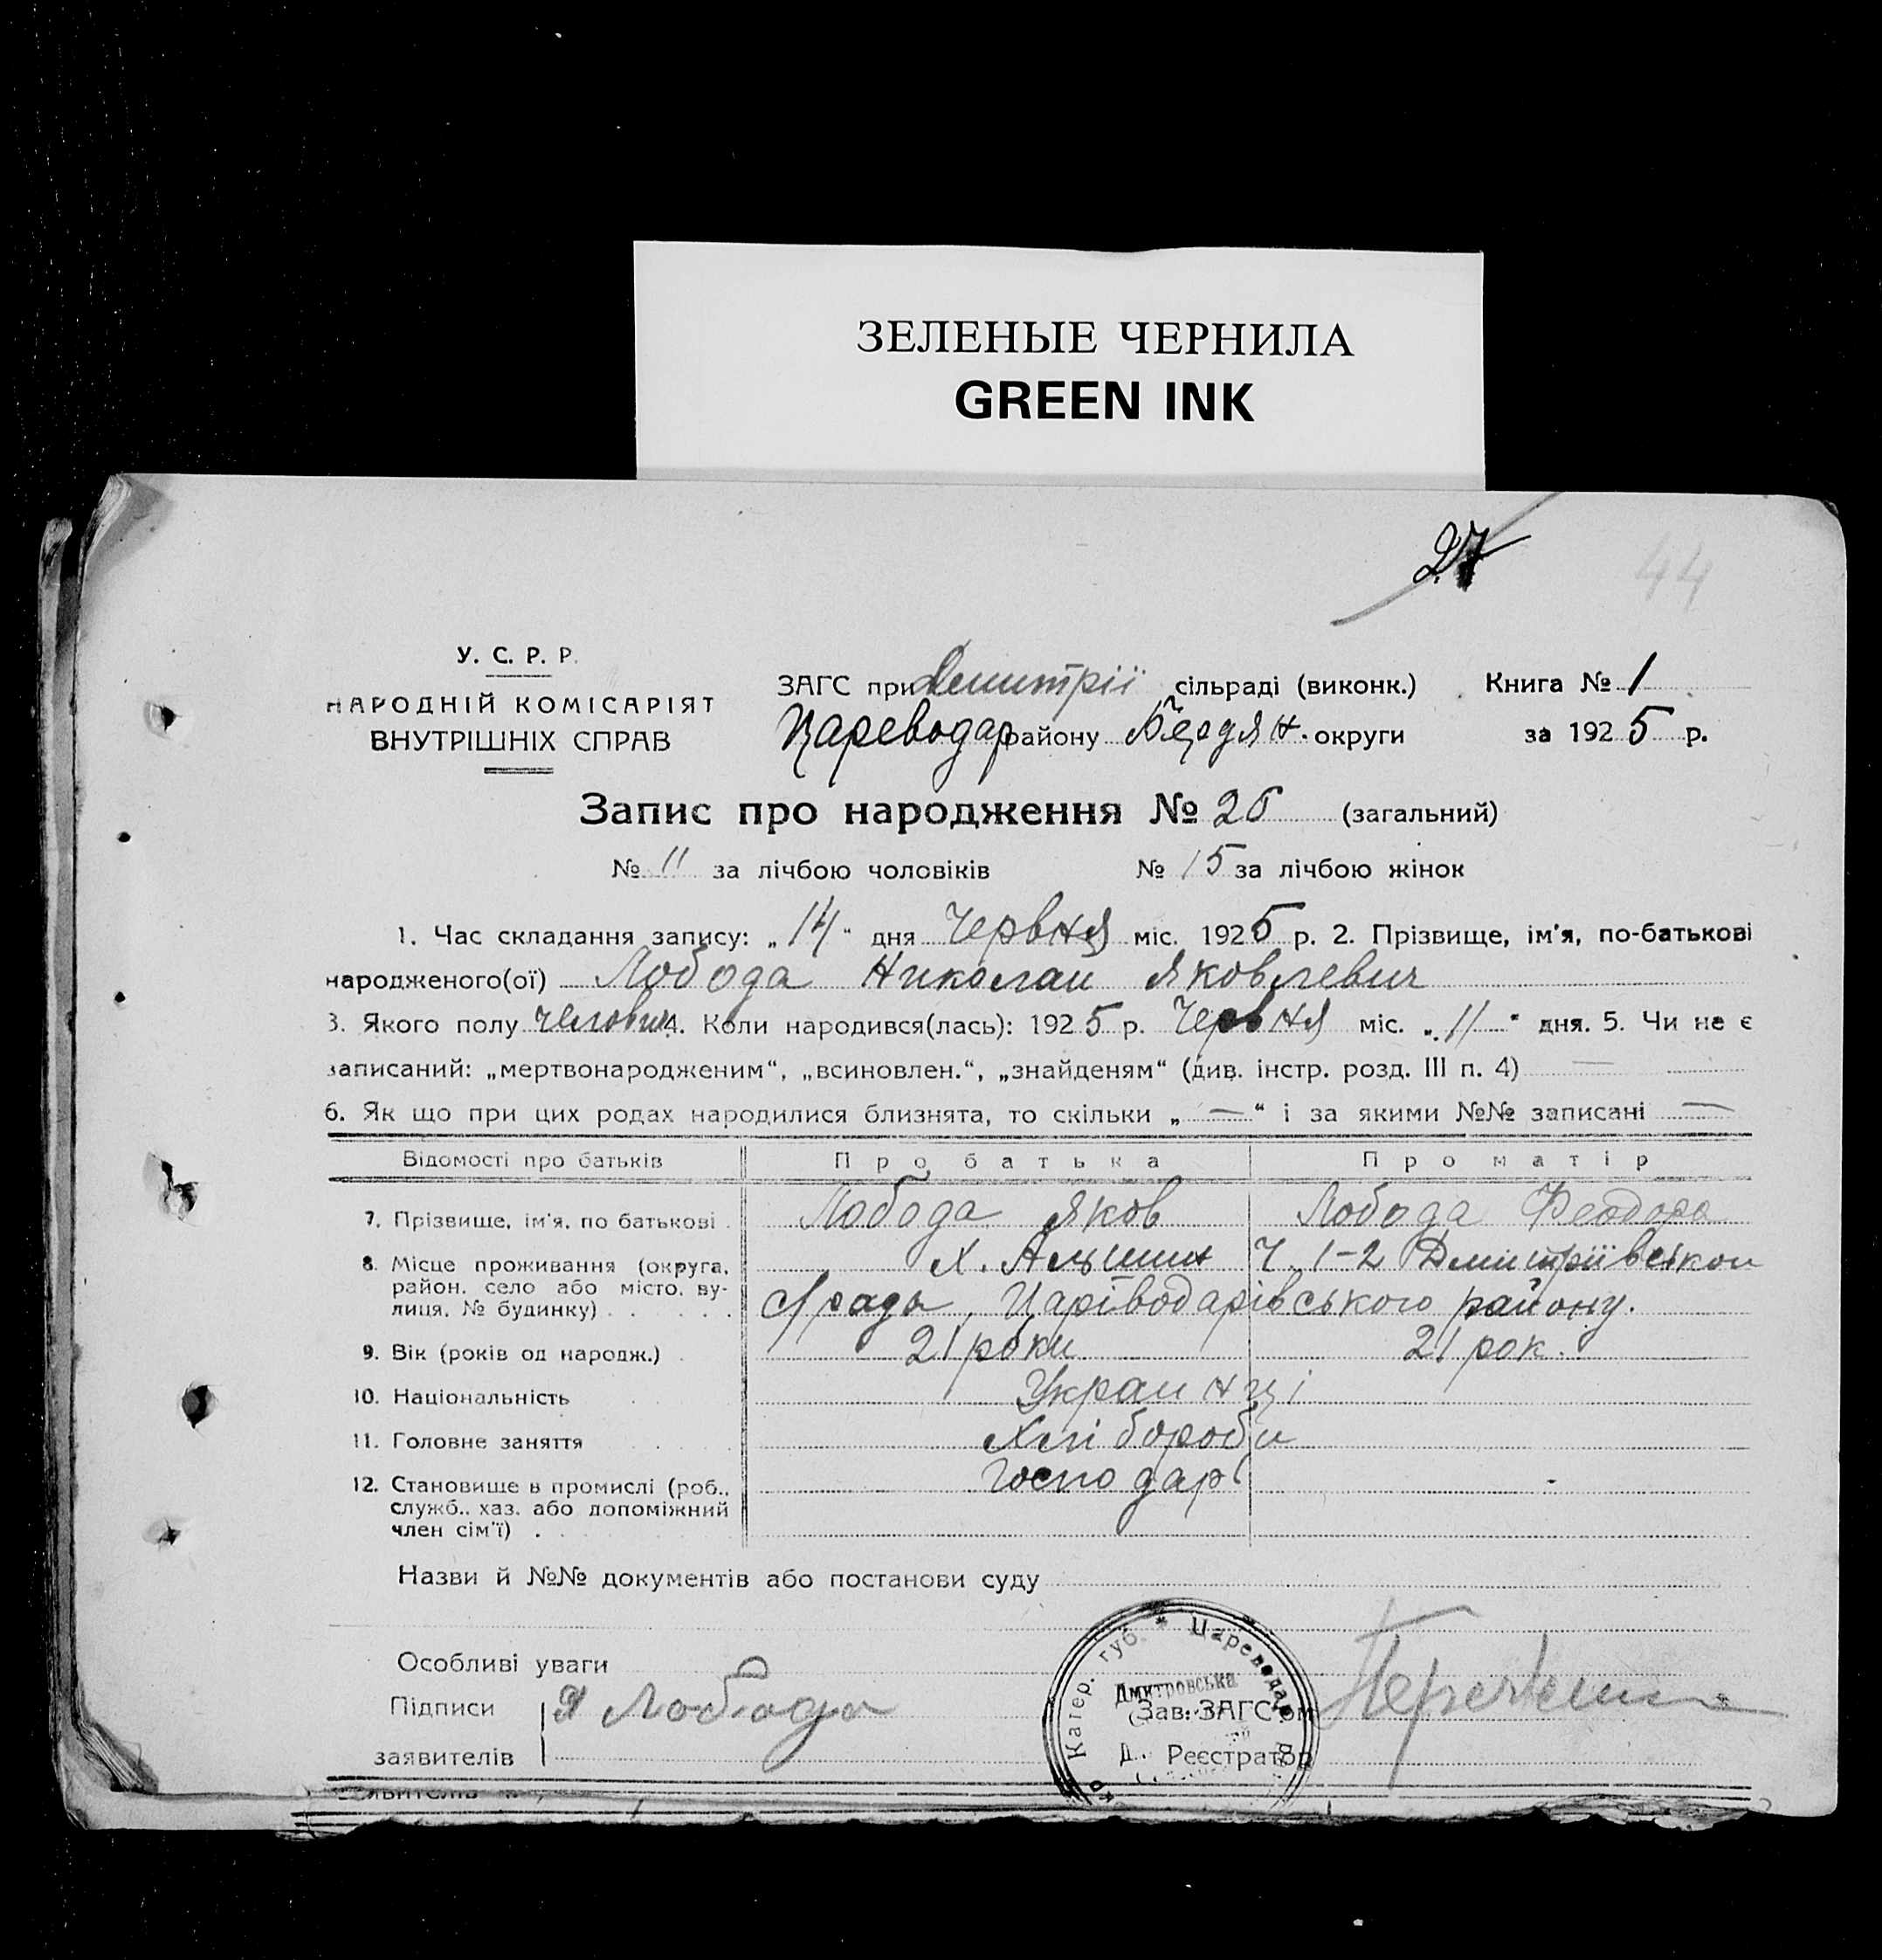 ЗЕЛЕНЫЕ ЧЕРНИЛА
GREEN INK
27
44
У. С. Р. Р.
НАРОДНІЙ КОМІСАРІЯТ
ВНУТРІШНІХ СПРАВ
ЗАГС при Дмитрії сільраді (виконк.) Книга № 1
Цареводар району Бердян. округи за 1925 р.
Запис про народження № 26 (загальний)
№ 11 за лічбою чоловіків № 15 за лічбою жінок
1. Час складання запису: „14“ дня Червня міс. 1925 р. 2. Прізвище, ім'я, по-батькові
народженого(ої) Лобода Николаи Яковлевич
3. Якого полу 4. Коли народився(лась): 1925 р. Червня міс. „11“ дня. 5. Чи не є
записаний: „мертвонародженим“, „всиновлен.“, „знайденям“ (див. інстр. розд. III п. 4) —
6. Як що при цих родах народилися близнята, то скільки „—“ і за якими №№ записані —
Відомості про батьків Про батька Про матір
7. Прізвище, ім'я, по батькові Лобода Яков Лобода Феодора
8. Місце проживання (округа, Х. 1-2 Дмитріївскои
район, село або місто, ву-
лиця, № будинку) с/рады, Царіводарівського району.
9. Вік (років од народж.) 21 роки 21 рок.
10. Національність Украинці
11. Головне заняття Хлібороби
12. Становище в промислі (роб., Господарі
служб., хаз. або допоміжний
член сім'ї)
Назви й №№ документів або постанови суду
Особливі уваги
Підписи Я Лобода
заявителів
Катер. губ. * Цареводар
Дмитровська
Зав. ЗАГС'ом
Реєстратор